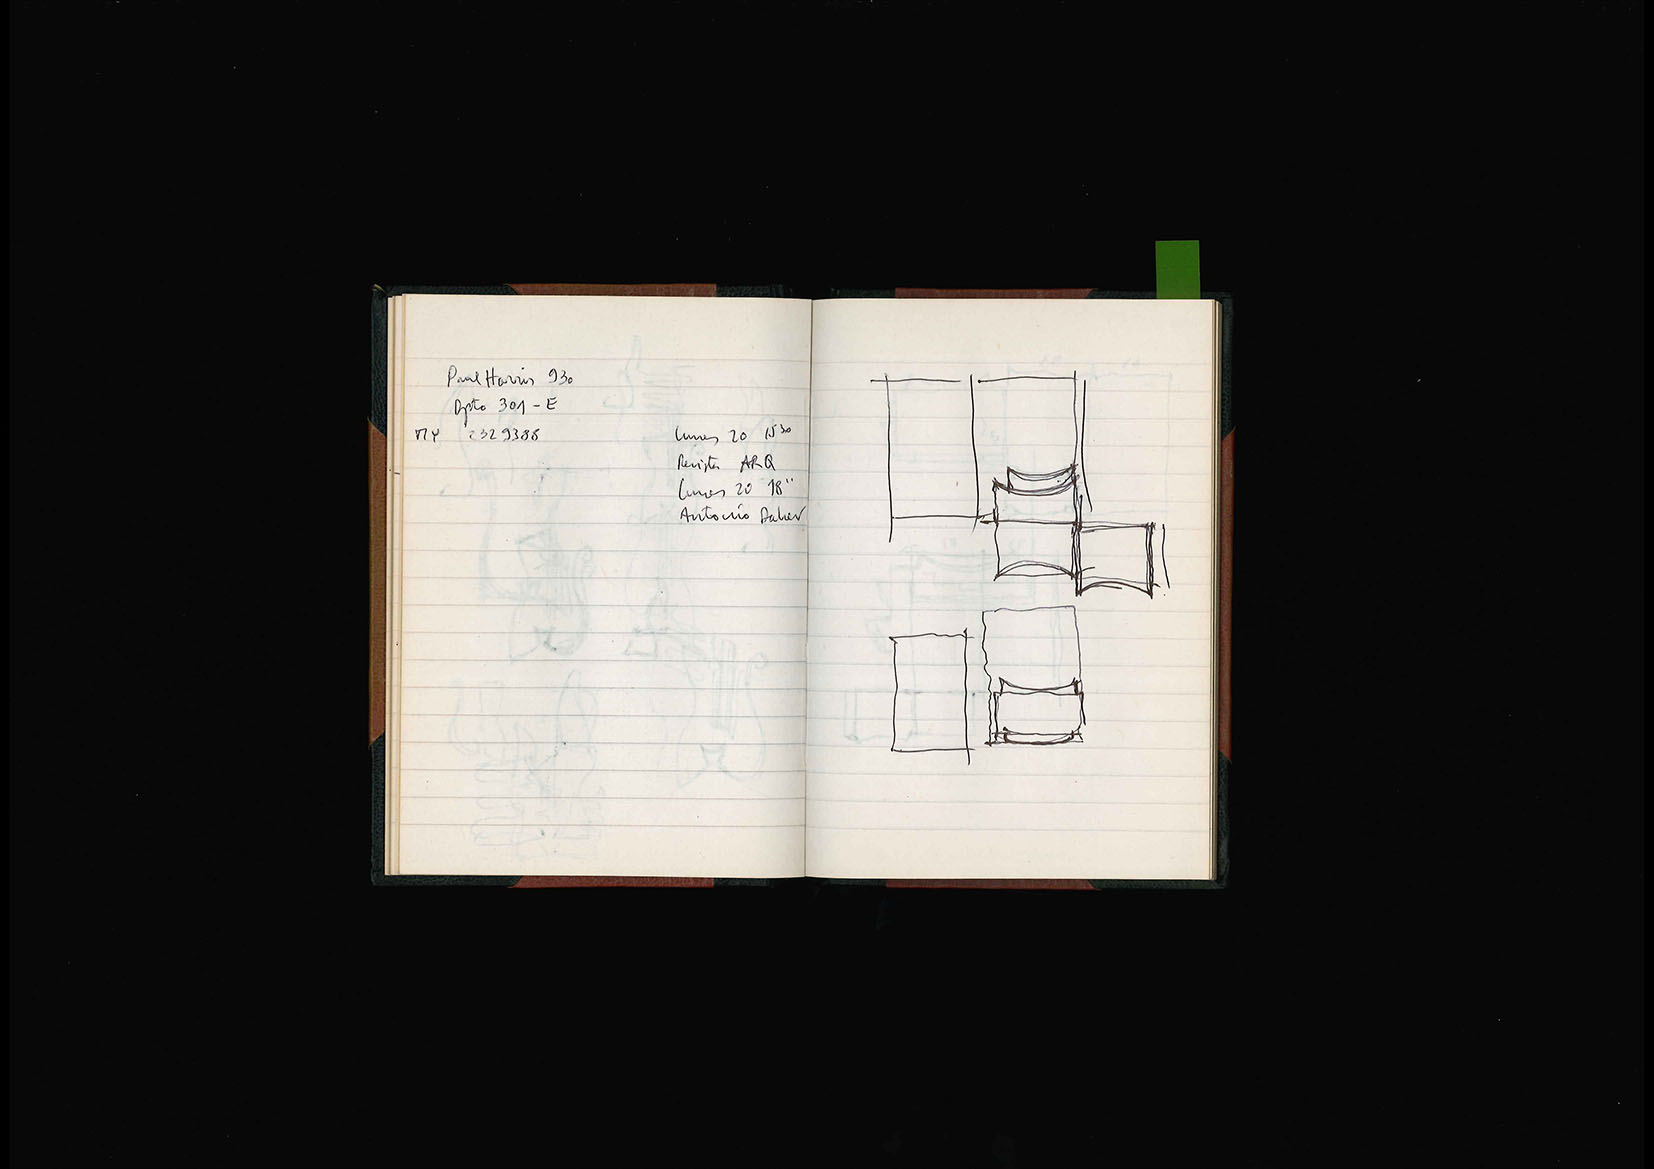 Paul Harris 930
Dpto 301-E
MY 2329388
Lunes 20 15³⁰
Revista ARQ
Lunes 20 18''
Antonio Daher